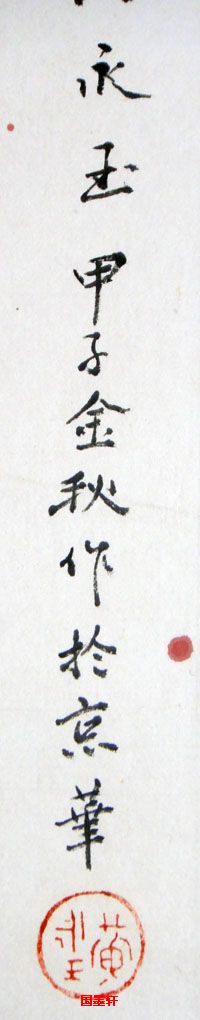 永玉甲子金秋作於京華
黄永玉
国墨轩